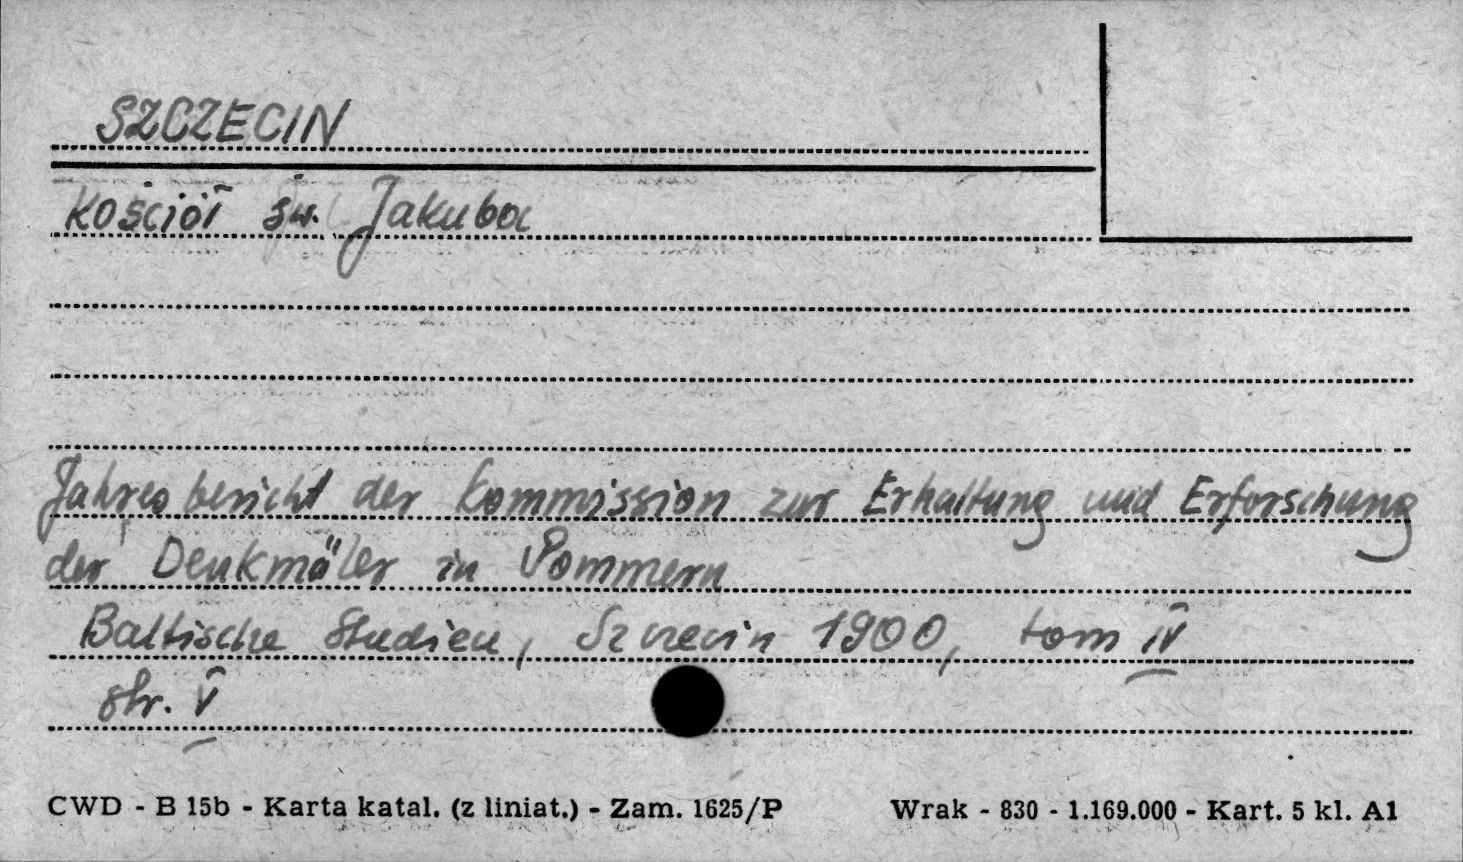 SZCZECIN
Kościół św. Jakuba
Jahresbericht der Kommission zur Erhaltung und Erforschung
der Denkmäler in Pommern
Baltische Studien, Szczecin 1900, tom IV
str. V
CWD - B 15b - Karta katal. (z liniat.) - Zam. 1625/P
Wrak - 830 - 1.169.000 - Kart. 5 kl. A1